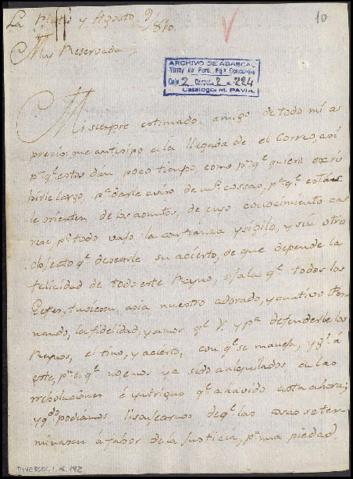 La Plata y Agosto 9/810.
10
Muy Reservada
ARCHIVO DE ABASCAL
Virrey de Perú, Mqs. Concordia
Caja 2 Carpeta 2 nº 224
Catalogó: M. PAVIA
Mi siempre estimado amigo de todo mi a
precio: me anticipo a la llegada de el Correo, asi
pr. qe. estas dan poco tiempo, como pr. qe. quiero escri
birle largo, pa. darle aviso de ms. cosas, pr. qe.
le orienten de los asuntos, de cuyo conocimiento ca
rece pr. todo vajo la confianza y sigilo, y sin otro
objecto qe. desearle su acierto, de que depende la
felicidad de todo este Reyno, ojala qe. todos los
Gefes tuviesen, acia nuestro adorado, y cautivo Fer
nando, la fidelidad, y amor qe. V. y pa. defenderle los
Reynos, el tino, y acierto, con qe. se maneja, y qe. á
este, pr. el qe. no emos ya sido aniquilados, a las
rreboluciones é yntrigas qe. a havido asta ahora;
y qe. podiamos lisongearnos de qe. las cosas se ter
minasen á fabor de la Justicia, pr. una piedad
DIVERSOS, 1, A. 142